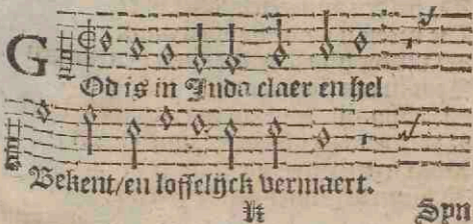 GOd is in Juda claer en hel
Bekent/en loffelijck vermaert.
Syn